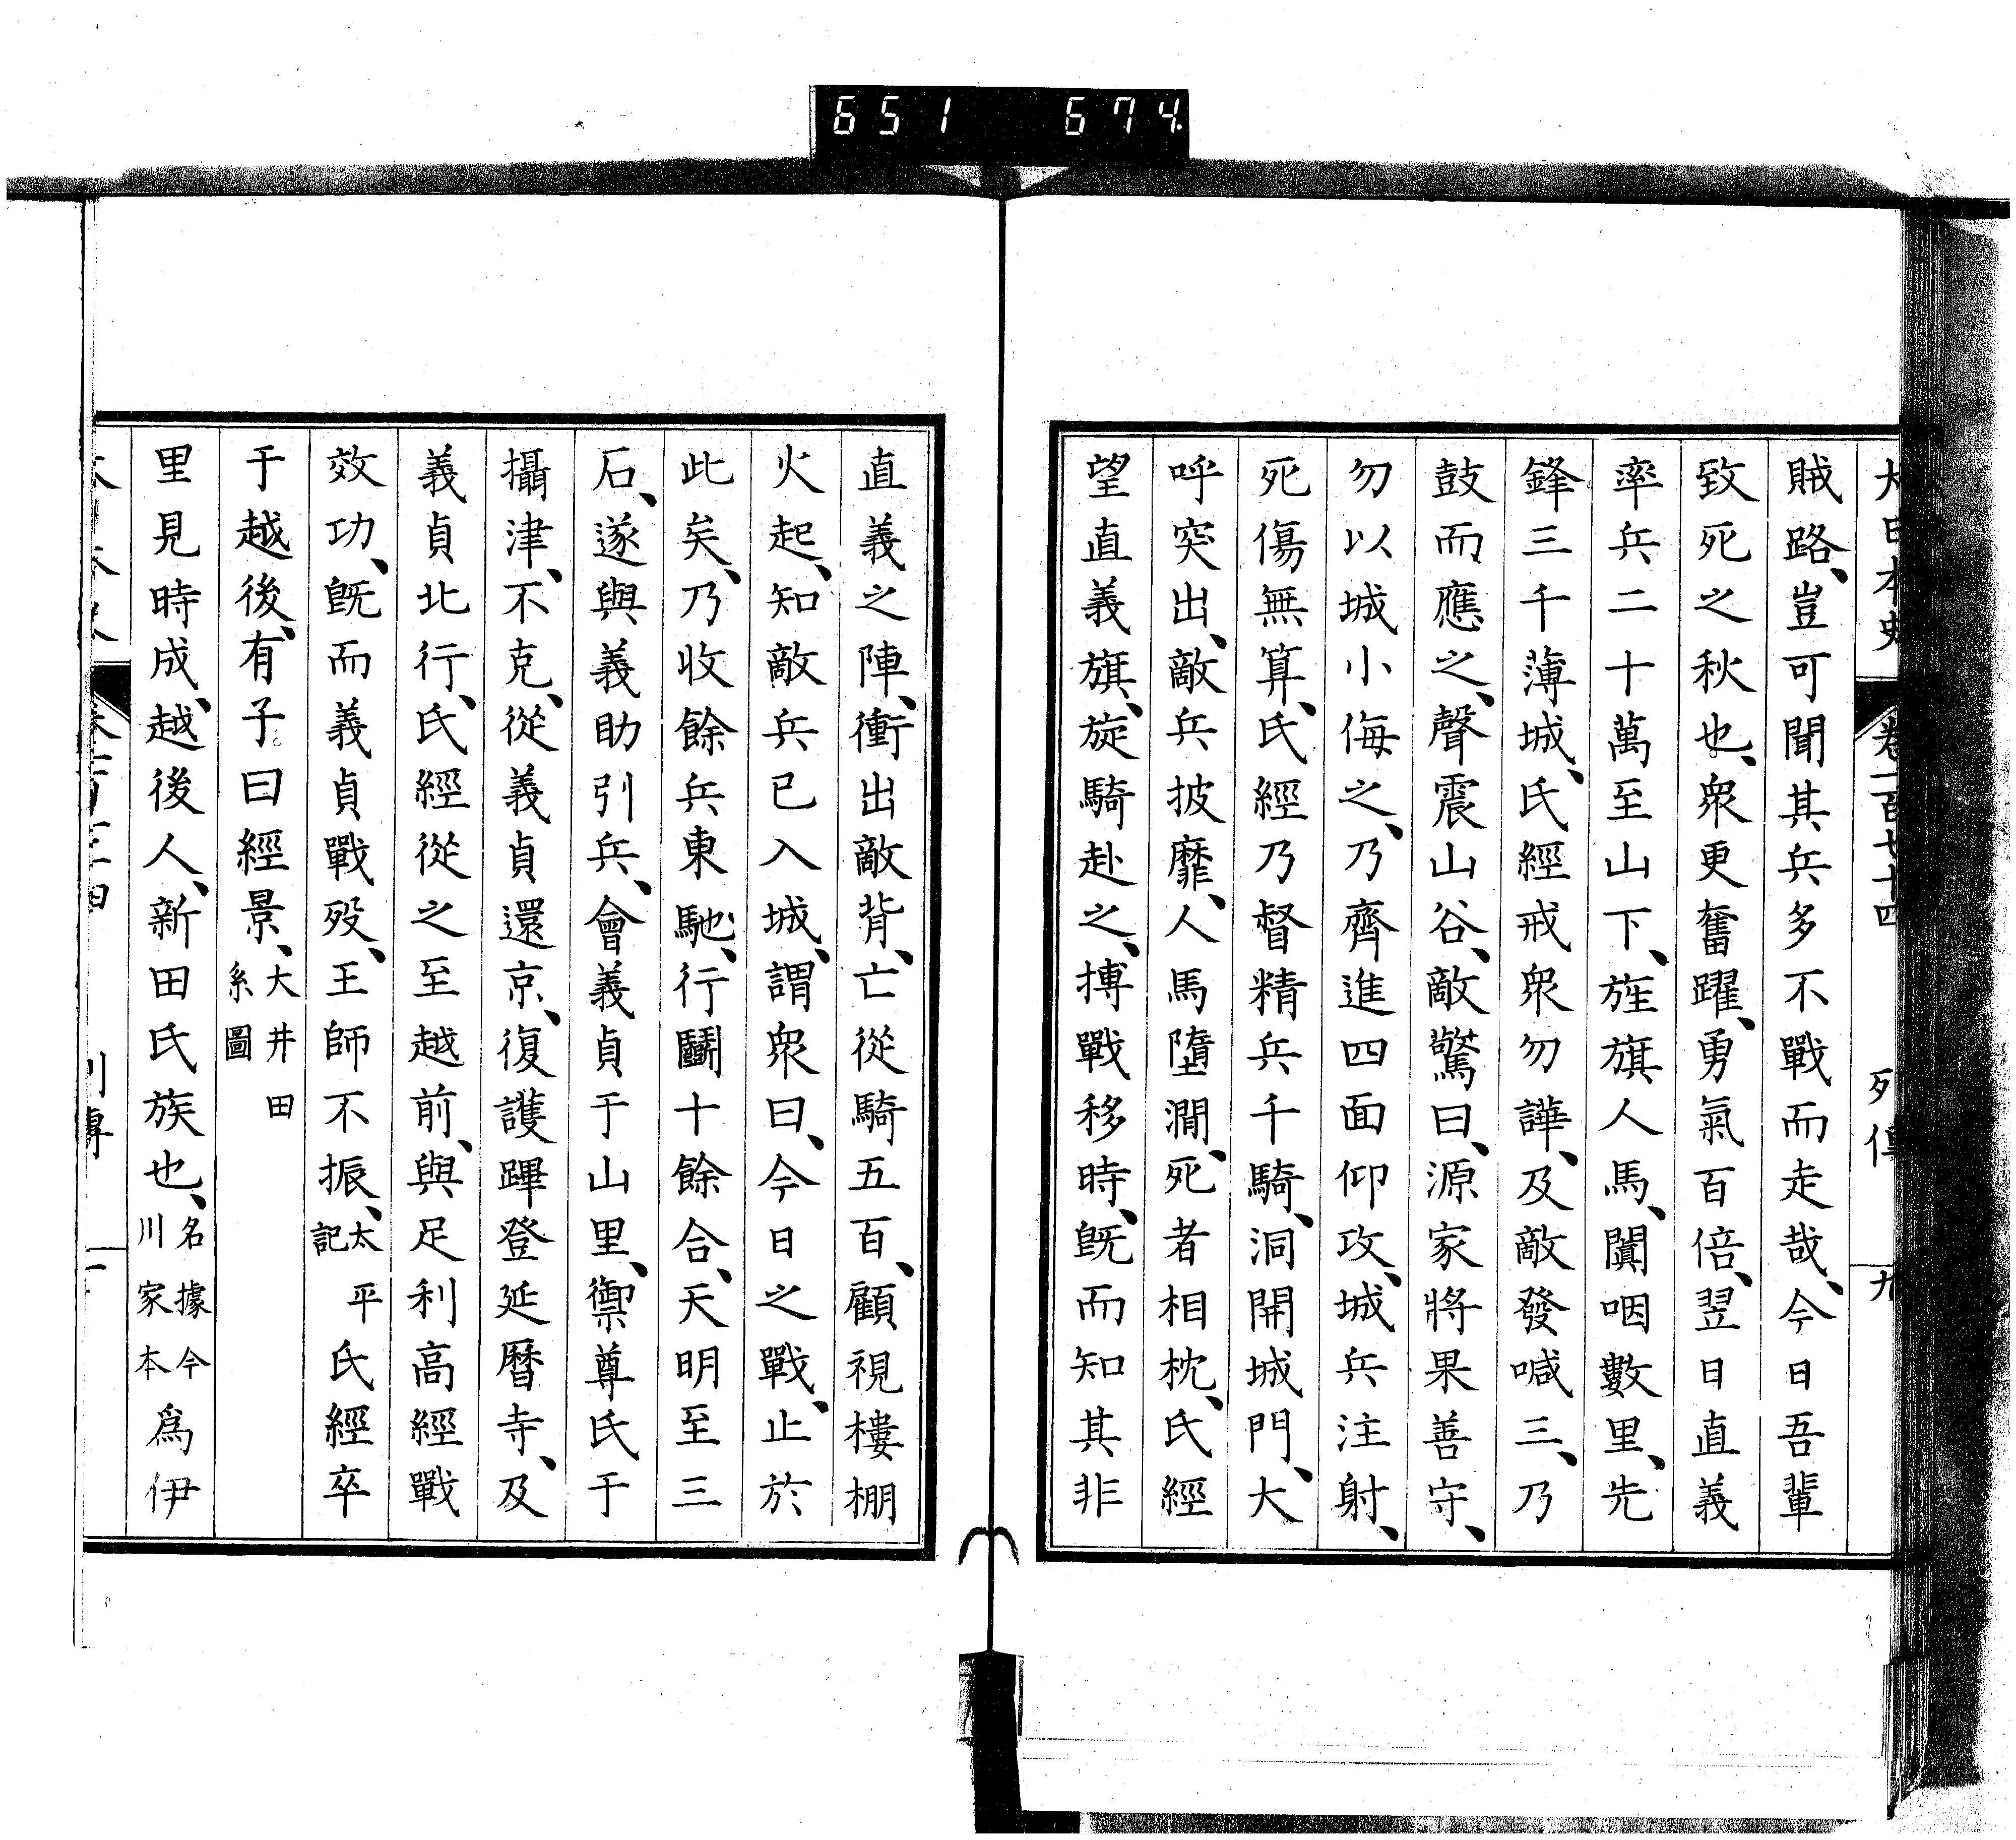 651 674
大日本史 卷一百七十四 列傳 九
賊路、豈可聞其兵多不戰而走哉、今日吾輩
致死之秋也、衆更奮躍、勇氣百倍、翌日直義
率兵二十萬至山下、旌旗人馬、闐咽數里、先
鋒三千薄城、氏經戒衆勿譁、及敵發喊三、乃
鼓而應之、聲震山谷、敵驚曰、源家將果善守、
勿以城小侮之、乃齊進四面仰攻、城兵注射、
死傷無算、氏經乃督精兵千騎、洞開城門、大
呼突出、敵兵披靡、人馬墮澗、死者相枕、氏經
望直義旗、旋騎赴之、搏戰移時、旣而知其非
直義之陣、衝出敵背、亡從騎五百、顧視樓棚
火起、知敵兵已入城、謂衆曰、今日之戰、止於
此矣、乃收餘兵東馳、行鬭十餘合、天明至三
石、遂與義助引兵、會義貞于山里、禦尊氏于
攝津、不克、從義貞還京、復護蹕登延曆寺、及
義貞北行、氏經從之至越前、與足利高經戰
效功、旣而義貞戰歿、王師不振、太平記 氏經卒
于越後、有子曰經景、大井田系圖
里見時成、越後人、新田氏族也、名據今川家本 爲伊